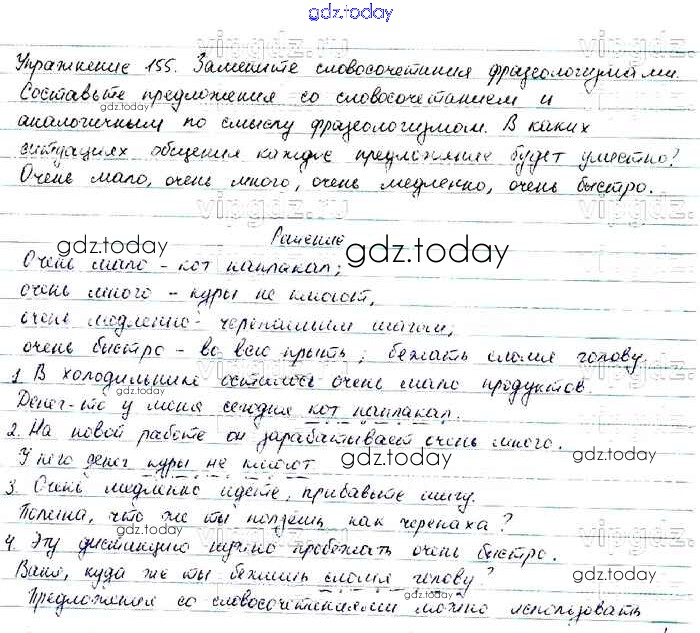 gdz.today
Упражнение 155. Замените словосочетания фразеологизмами.
Составьте предложения со словосочетанием и
аналогичным по смыслу фразеологизмом. В каких
ситуациях общения каждое предложение будет уместно?
Очень мало, очень много, очень медленно, очень быстро.
Решение
Очень мало - кот наплакал;
очень много - куры не клюют,
очень медленно - черепашьим шагом;
очень быстро - во всю прыть; бежать сломя голову
1. В холодильнике осталось очень мало продуктов.
Денег-то у меня сегодня кот наплакал.
2. На новой работе он зарабатывает очень много.
У него денег куры не клюют
3. Очень медленно идете, прибавьте шагу.
Полина, что же ты ползешь как черепаха?
4. Эту дистанцию нужно пробежать очень быстро.
Ваня, куда же ты бежишь сломя голову?
Предложения со словосочетаниями можно использовать